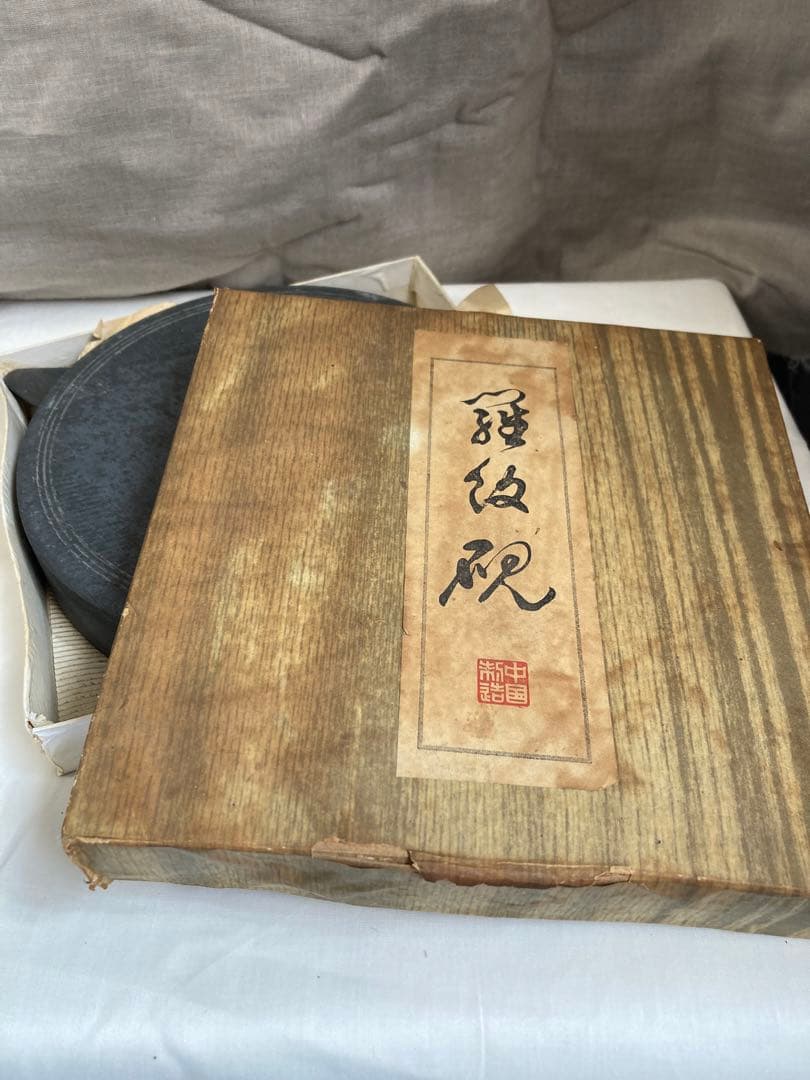 羅紋硯
中国
制造